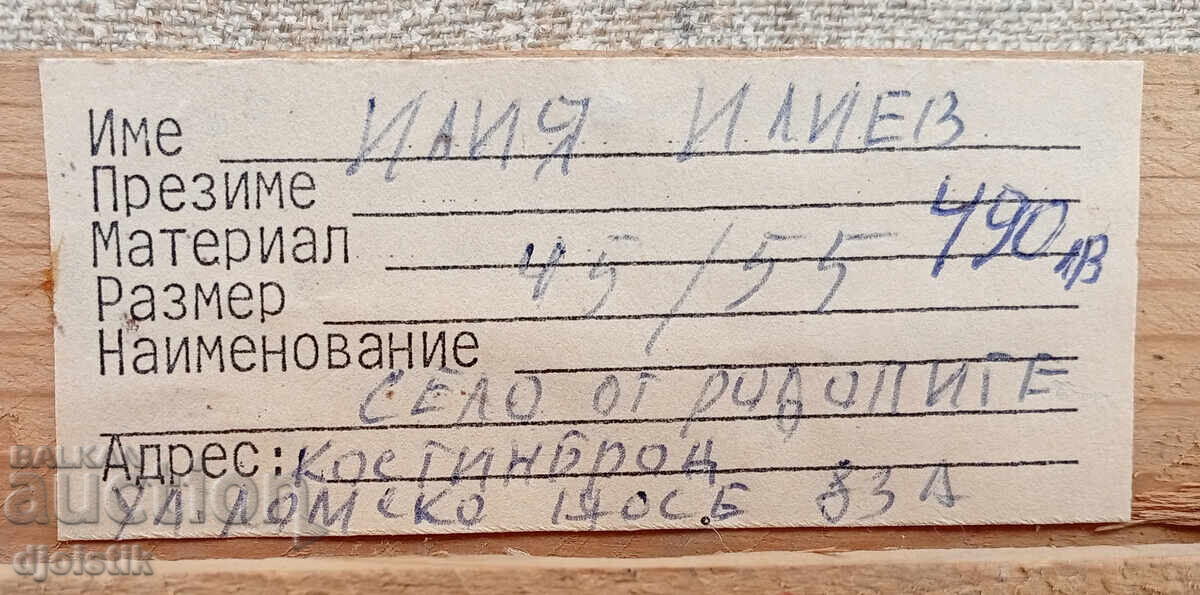 Име ИЛИЯ ИЛИЕВ
Презиме
Материал 490лв
Размер 45/55
Наименование
СЕЛО ОТ РОДОПИТЕ
Адрес: КОСТИНБРОД
УЛ ЛОМСКО ШОСЕ 33 А
BALKAN
auction
djoistik